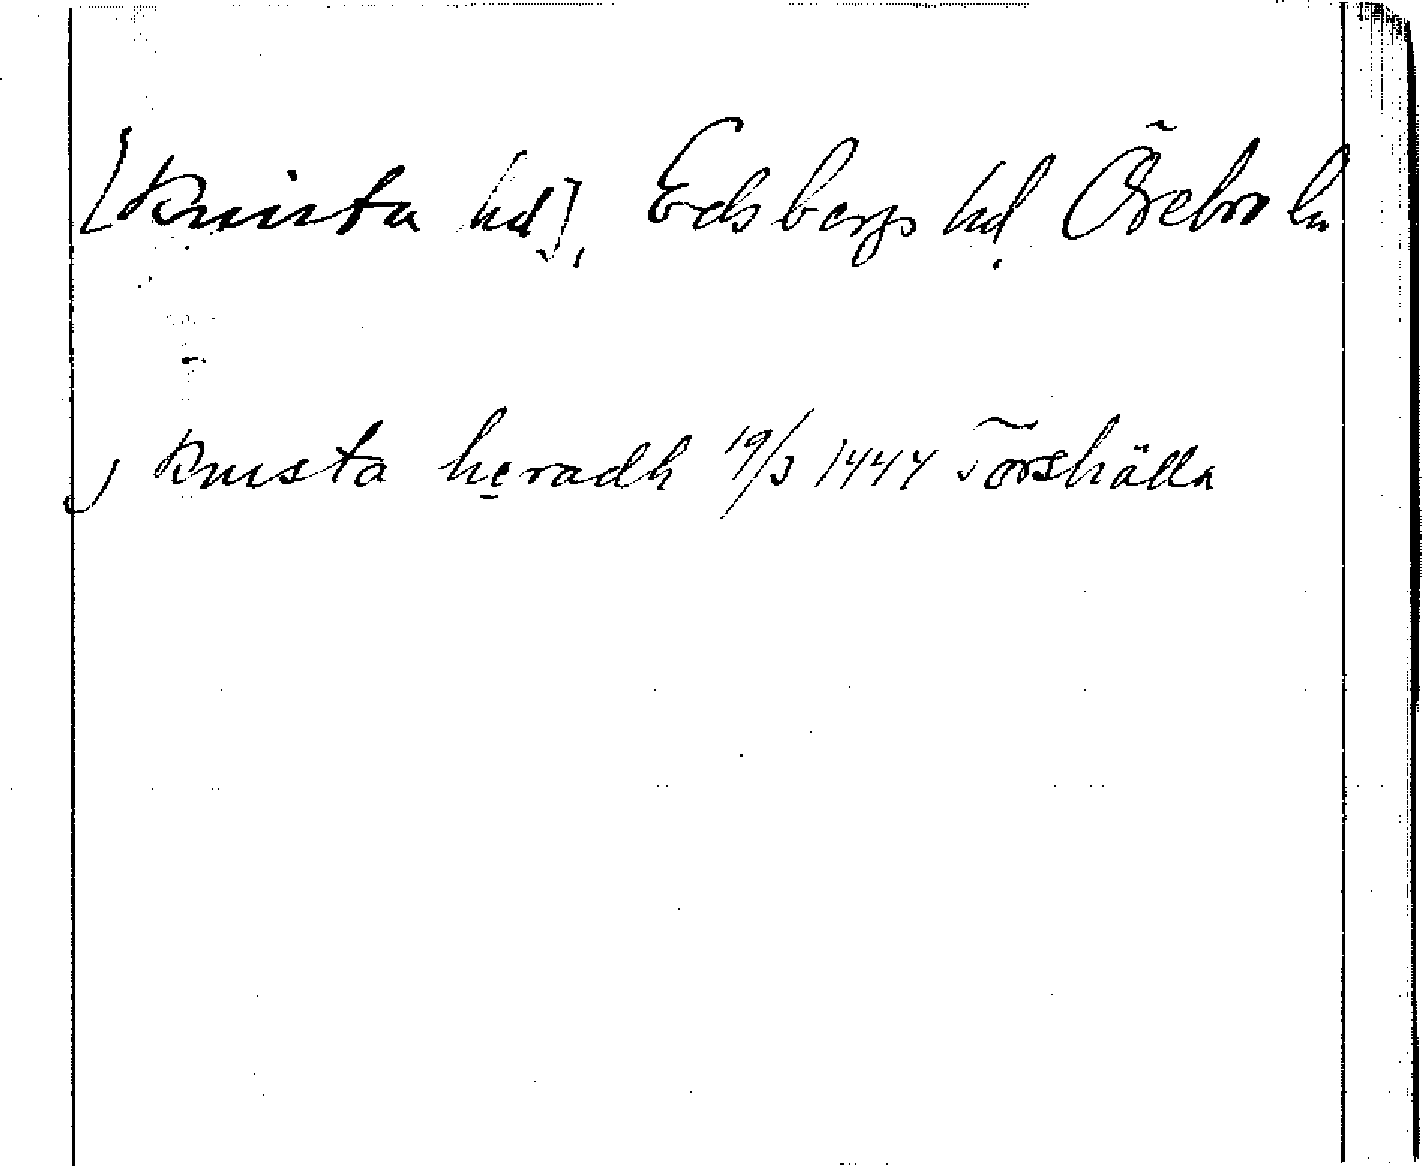 [Knista hd], Edsbergs hd, Örebro ln
j knista heradh 19/3 1444 Torshälla